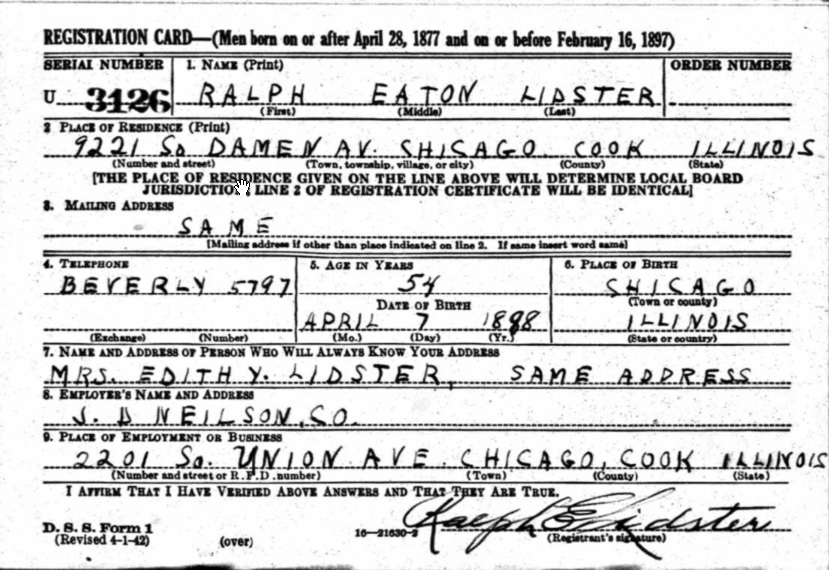 REGISTRATION CARD—(Men born on or after April 28, 1877 and on or before February 16, 1897)
SERIAL NUMBER 1. NAME (Print) ORDER NUMBER
U 3126 RALPH EATON LIDSTER
(First) (Middle) (Last)
2 PLACE OF RESIDENCE (Print)
9221 So DAMEN AV. SHICAGO COOK ILLINOIS
(Number and street) (Town, township, village, or city) (County) (State)
[THE PLACE OF RESIDENCE GIVEN ON THE LINE ABOVE WILL DETERMINE LOCAL BOARD
JURISDICTION; LINE 2 OF REGISTRATION CERTIFICATE WILL BE IDENTICAL]
3. MAILING ADDRESS
SAME
[Mailing address if other than place indicated on line 2. If same insert word same]
4. TELEPHONE 5. AGE IN YEARS 6. PLACE OF BIRTH
BEVERLY 5797 54 SHICAGO
DATE OF BIRTH (Town or county)
APRIL 7 1888 ILLINOIS
(Exchange) (Number) (Mo.) (Day) (Yr.) (State or country)
7. NAME AND ADDRESS OF PERSON WHO WILL ALWAYS KNOW YOUR ADDRESS
MRS. EDITH Y. LIDSTER, SAME ADDRESS
8. EMPLOYER'S NAME AND ADDRESS
J. D NEILSON, CO.
9. PLACE OF EMPLOYMENT OR BUSINESS
2201 So. UNION AVE. CHICAGO, COOK ILLINOIS
(Number and street or R. F. D. number) (Town) (County) (State)
I AFFIRM THAT I HAVE VERIFIED ABOVE ANSWERS AND THAT THEY ARE TRUE.
Ralph E Lidster
D. S. S. Form 1
(Revised 4-1-42) (over) 16—21630-2 (Registrant's signature)